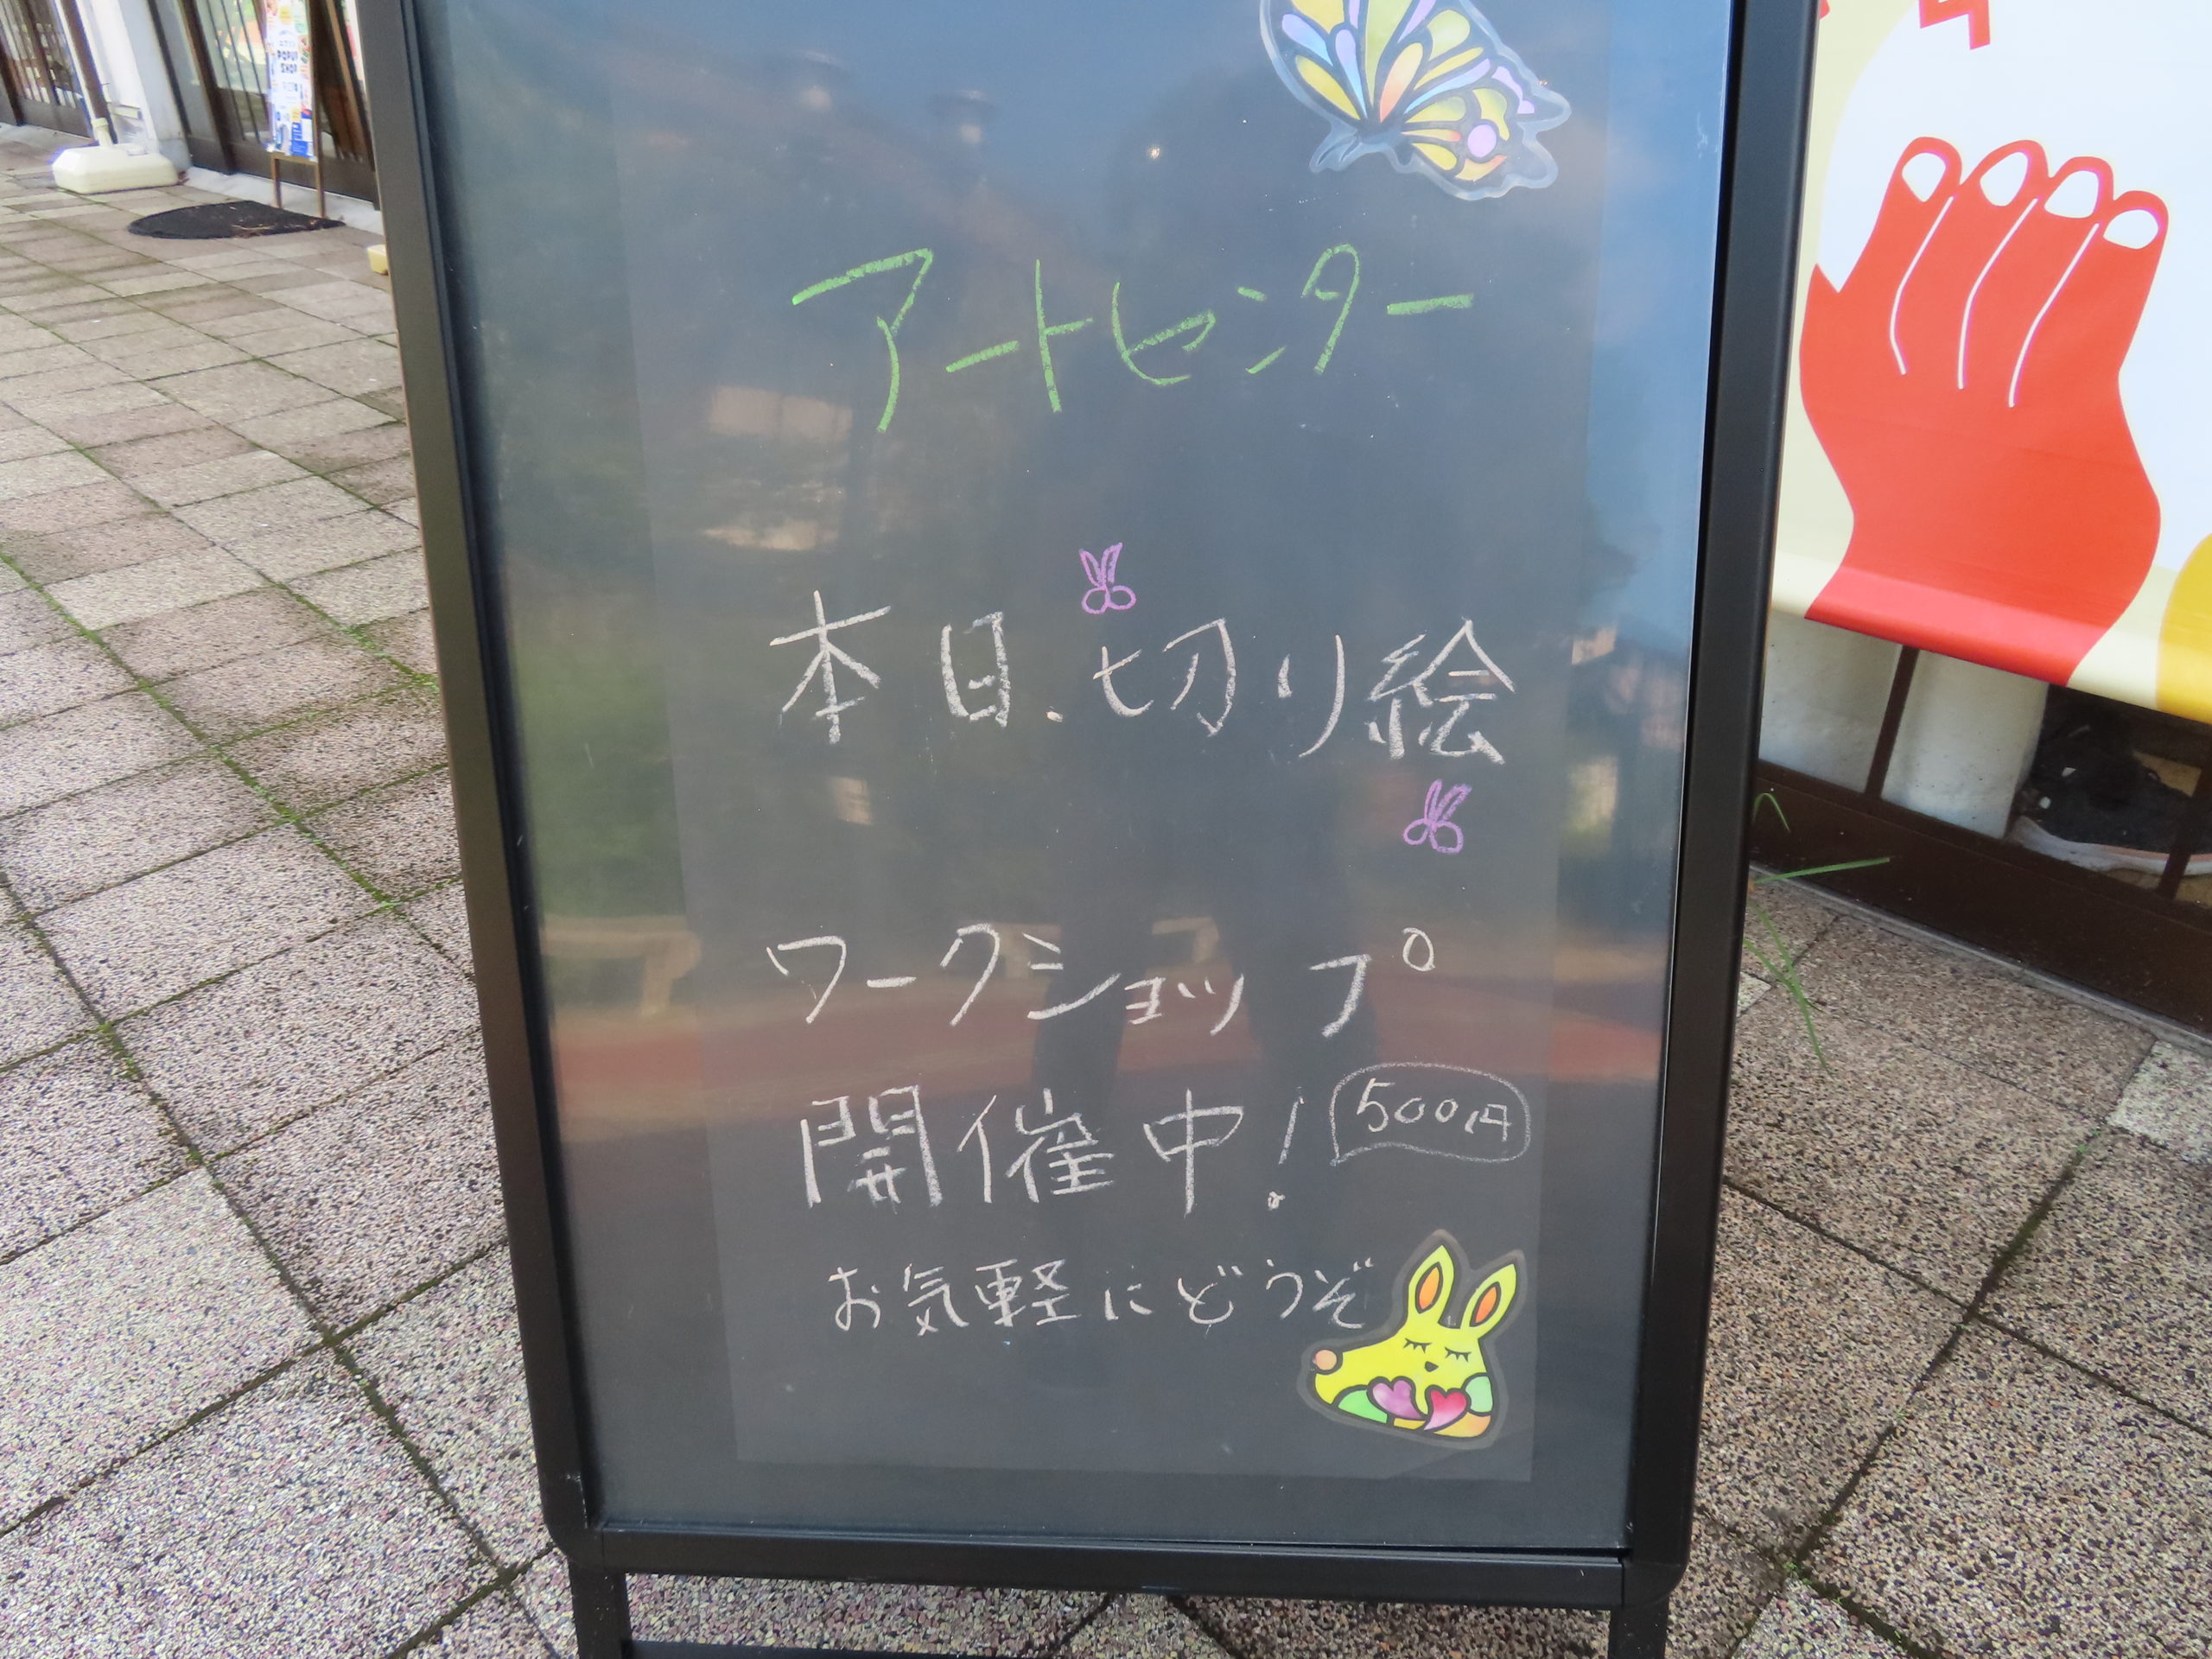 アートセンター
本日、切り絵
ワークショップ
開催中！ 500円
お気軽にどうぞ
POPUP
SHOP